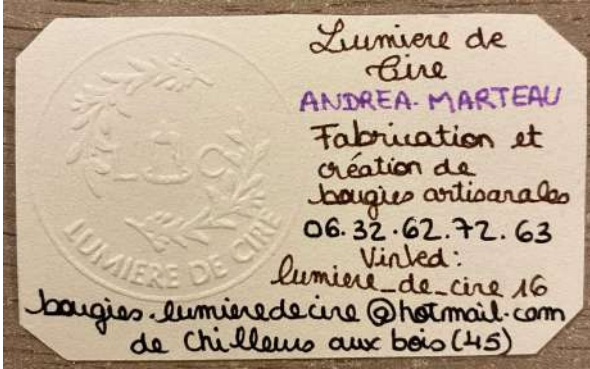 Lumiere de
Cire
ANDREA. MARTEAU
Fabrication et
création de
bougies artisanales
06.32.62.72.63
Vinted:
lumiere_de_cire 16
bougies.lumieredecire@hotmail.com
de Chilleurs aux bois (45)
LDC
LUMIERE DE CIRE